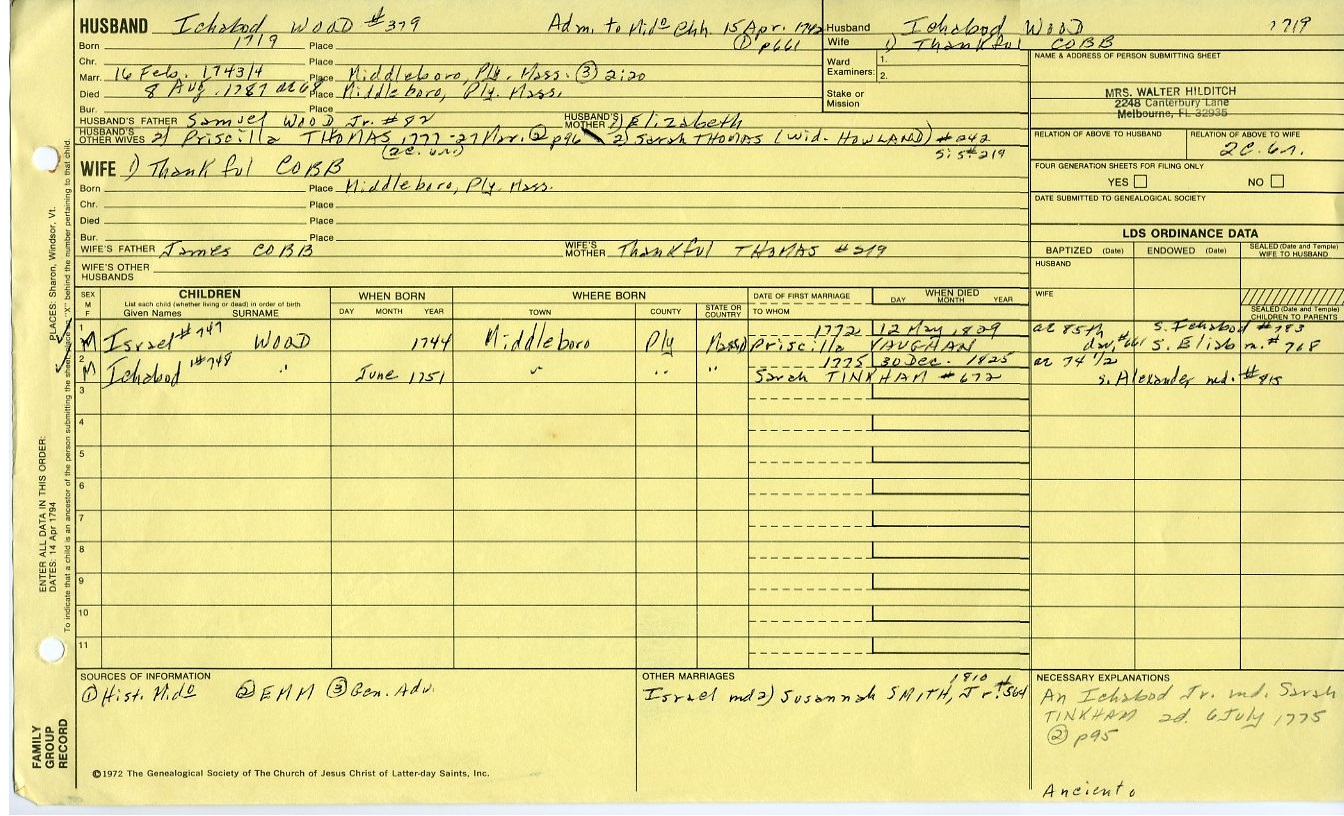 HUSBAND Ichabod WOOD #379 Adm. to Mido Chh. 15 Apr. 1742
Born 1719 Place ① p661
Chr. Place
Marr. 16 Feb. 1743/4 Place Middleboro, Ply. Mass. ③ 2:20
Died 8 Aug. 1787 ae 68 Place Middleboro, Ply. Mass.
Bur. Place
HUSBAND'S FATHER Samuel WOOD Jr. #82 HUSBAND'S MOTHER 1) Elizabeth
HUSBAND'S OTHER WIVES 2) Priscilla THOMAS 1777-27 Mar. ② p96 2) Sarah THOMAS (wid. HOWLAND) #242
(2C. 6r.) Si S #219
Husband Ichabod WOOD 1719
Wife 1) Thankful COBB
Ward Examiners: 1.
2.
Stake or Mission
NAME & ADDRESS OF PERSON SUBMITTING SHEET
MRS. WALTER HILDITCH
2248 Canterbury Lane
Melbourne, FL 32935
RELATION OF ABOVE TO HUSBAND RELATION OF ABOVE TO WIFE
2C. 6r.
FOUR GENERATION SHEETS FOR FILING ONLY
YES NO
DATE SUBMITTED TO GENEALOGICAL SOCIETY
WIFE 1) Thankful COBB
Born Place Middleboro, Ply. Mass.
Chr. Place
Died Place
Bur. Place
WIFE'S FATHER James COBB WIFE'S MOTHER Thankful THOMAS #219
WIFE'S OTHER HUSBANDS
LDS ORDINANCE DATA
BAPTIZED (Date) ENDOWED (Date) SEALED (Date and Temple) WIFE TO HUSBAND
HUSBAND
WIFE
SEALED (Date and Temple) CHILDREN TO PARENTS
SEX M F CHILDREN WHEN BORN WHERE BORN DATE OF FIRST MARRIAGE WHEN DIED
List each child (whether living or dead) in order of birth
Given Names SURNAME DAY MONTH YEAR TOWN COUNTY STATE OR COUNTRY TO WHOM DAY MONTH YEAR
1 1772 12 May 1829 ae 85th s. Ichabod #783
M Israel #747 WOOD 1744 Middleboro Ply Mass Priscilla VAUGHAN dau. #661 s. Elisb m. #768
2 1775 30 Dec. 1825 ae 74 1/2
M Ichabod #748 " June 1751 " " " Sarah TINKHAM #672 s. Alexander md. #815
3
4
5
6
7
8
9
10
11
SOURCES OF INFORMATION
① Hist. Mido ② EMM ③ Gen. Adv.
OTHER MARRIAGES
Israel md 2) Susannah SMITH, Jr. 1810 #564
NECESSARY EXPLANATIONS
An Ichabod Jr. md. Sarah
TINKHAM 2d. 6 July 1775
② p95
Anciento
©1972 The Genealogical Society of The Church of Jesus Christ of Latter-day Saints, Inc.
FAMILY GROUP RECORD
ENTER ALL DATA IN THIS ORDER:
DATES: 14 Apr 1794 PLACES: Sharon, Windsor, Vt.
To indicate that a child is an ancestor of the person submitting the sheet, place an "X" behind the number pertaining to that child.